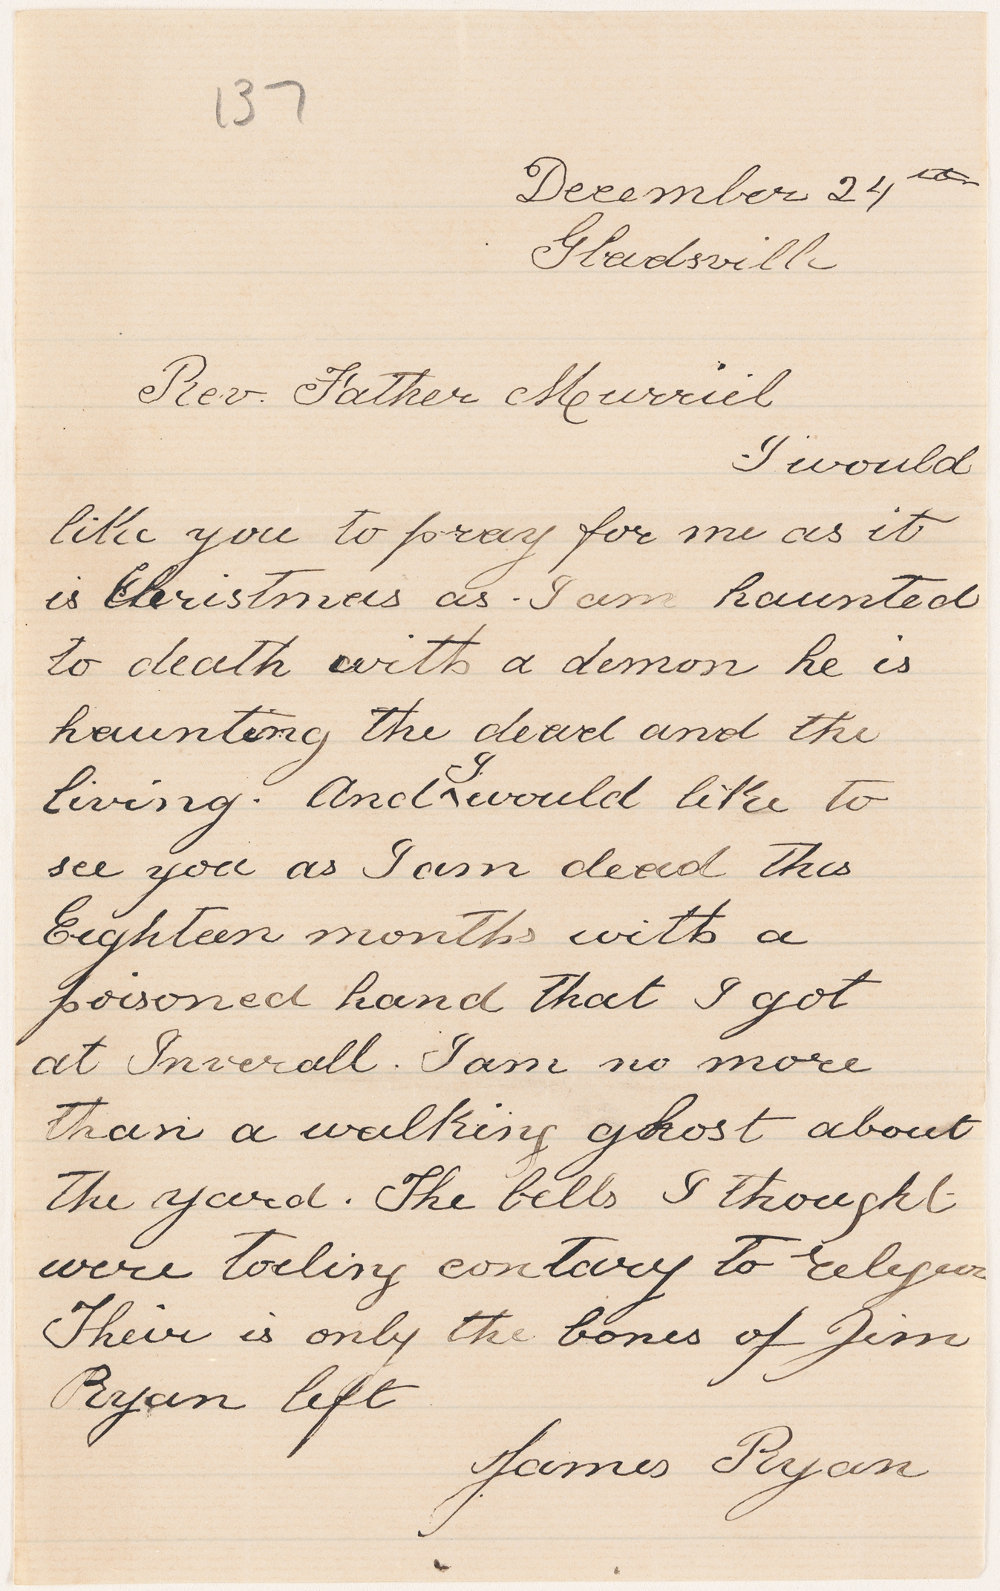 137
December 24th
Gladsvill
Rev. Father Murriel
I would
like you to pray for me as it
is Christmas as I am haunted
to death with a demon he is
haunting the dead and the
living. And I would like to
see you as I am dead this
Eighteen months with a
poisoned hand that I got
at Inverall. I am no more
than a walking ghost about
the yard. The bells I thought
were toeling contary to
Their is only the bones of Jim
Ryan left
James Ryan